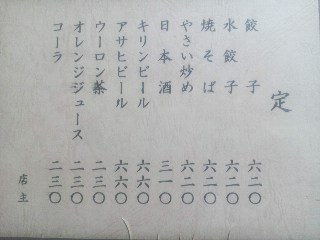 定
餃子 六二〇
水餃子 六二〇
焼そば 六二〇
やさい炒め 六二〇
日本酒 三一〇
キリンビール 六六〇
アサヒビール 六六〇
ウーロン茶 二三〇
オレンジジュース 二三〇
コーラ 二三〇
店主